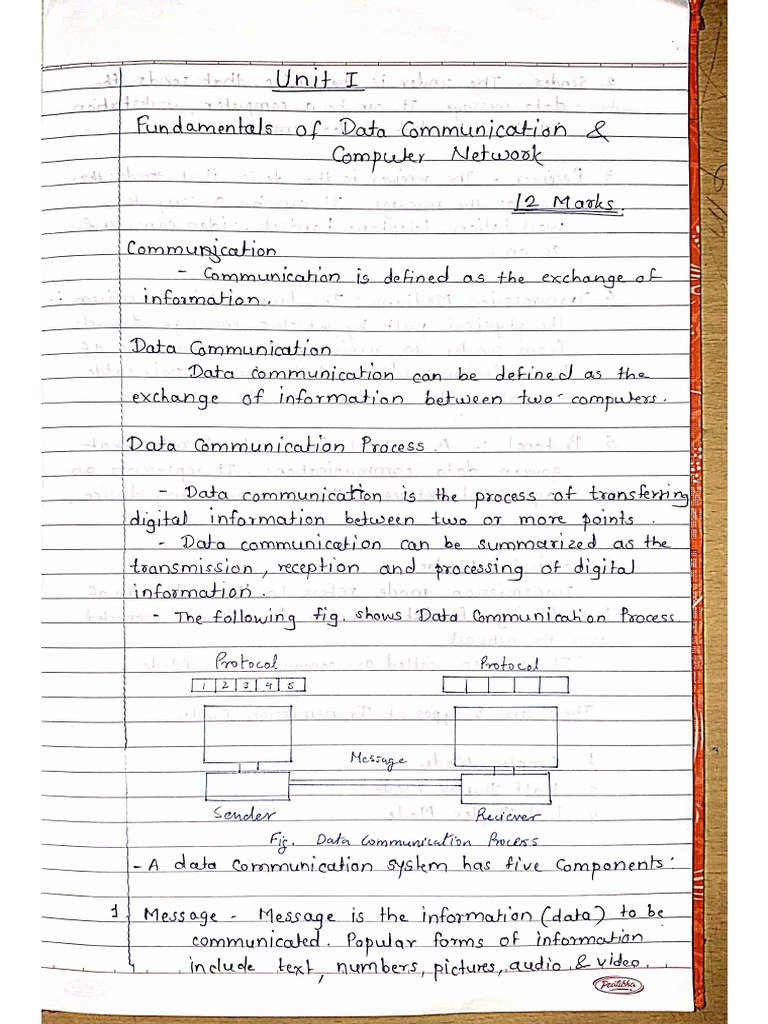 Unit I
Fundamentals of Data Communication &
Computer Network
12 Marks.
Communication
- Communication is defined as the exchange of
information.
Data Communication
Data communication can be defined as the
exchange of information between two computers.
Data Communication Process.
- Data communication is the process of transferring
digital information between two or more points.
- Data communication can be summarized as the
transmission, reception and processing of digital
information.
- The following fig. shows Data Communication Process.
Protocol Protocol
1 2 3 4 5
Message
Sender Reciever
Fig. Data Communication Process
- A data communication system has five components:
1 Message - Message is the information (data) to be
communicated. Popular forms of information
include text, numbers, pictures, audio & video.
Pratibha